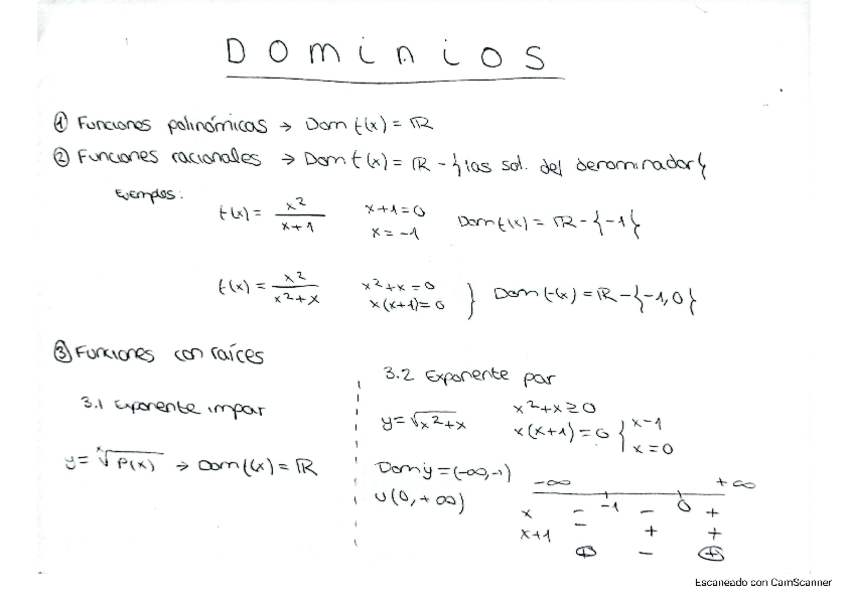 DOMINIOS
① Funciones polinómicas → Dom f(x) = ℝ
② Funciones racionales → Dom f(x) = ℝ - {las sol. del denominador}
Ejemplos:
f(x) = x²/(x+1)   x+1=0   Dom f(x) = ℝ - {-1}
x = -1
f(x) = x²/(x²+x)   x²+x=0   } Dom f(x) = ℝ - {-1, 0}
x(x+1)=0
③ Funciones con raíces
3.1 Exponente impar
y = ˣ√P(x) → Dom f(x) = ℝ
3.2 Exponente par
y = √x²+x   x²+x≥0
x(x+1)=0 { x-1
x=0
Dom y = (-∞,-1)
∪ (0, +∞)
-∞   -1   0   +∞
x   -   -   +
x+1   -   +   +
⊕   -   ⊕
Escaneado con CamScanner